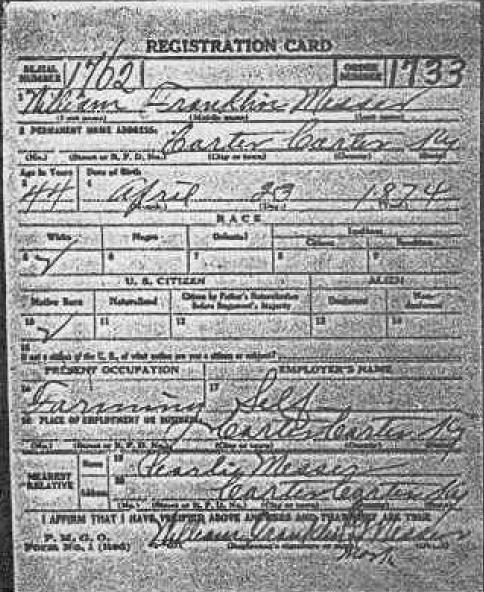 REGISTRATION CARD
SERIAL NUMBER 1762 ORDER NUMBER 1733
1 William Franklin Messer
(First name) (Middle name) (Last name)
2 PERMANENT HOME ADDRESS: Carter Carter Ky
(No.) (Street or R. F. D. No.) (City or town) (County) (State)
Age in Years Date of Birth
3 44 4 April 23 1874
(Month.) (Day.) (Year.)
RACE
White Negro Oriental Indian
Citizen Noncitizen
5 ✓ 6 7 8 9
U. S. CITIZEN ALIEN
Native Born Naturalized Citizen by Father's Naturalization Before Registrant's Majority Declarant Non-declarant
10 ✓ 11 12 13 14
15 If not a citizen of the U. S., of what nation are you a citizen or subject?
PRESENT OCCUPATION EMPLOYER'S NAME
16 Farming 17 Self
18 PLACE OF EMPLOYMENT OR BUSINESS: Carter Carter Ky
(No.) (Street or R. F. D. No.) (City or town) (County) (State)
NEAREST RELATIVE Name 19 Pearlie Messer
Address 20 Carter Carter Ky
(No.) (Street or R. F. D. No.) (City or town) (County) (State)
I AFFIRM THAT I HAVE VERIFIED ABOVE ANSWERS AND THAT THEY ARE TRUE
P. M. G. O.
Form No. 1 (Red) William Franklin Messer
(Registrant's signature or mark)
Mark